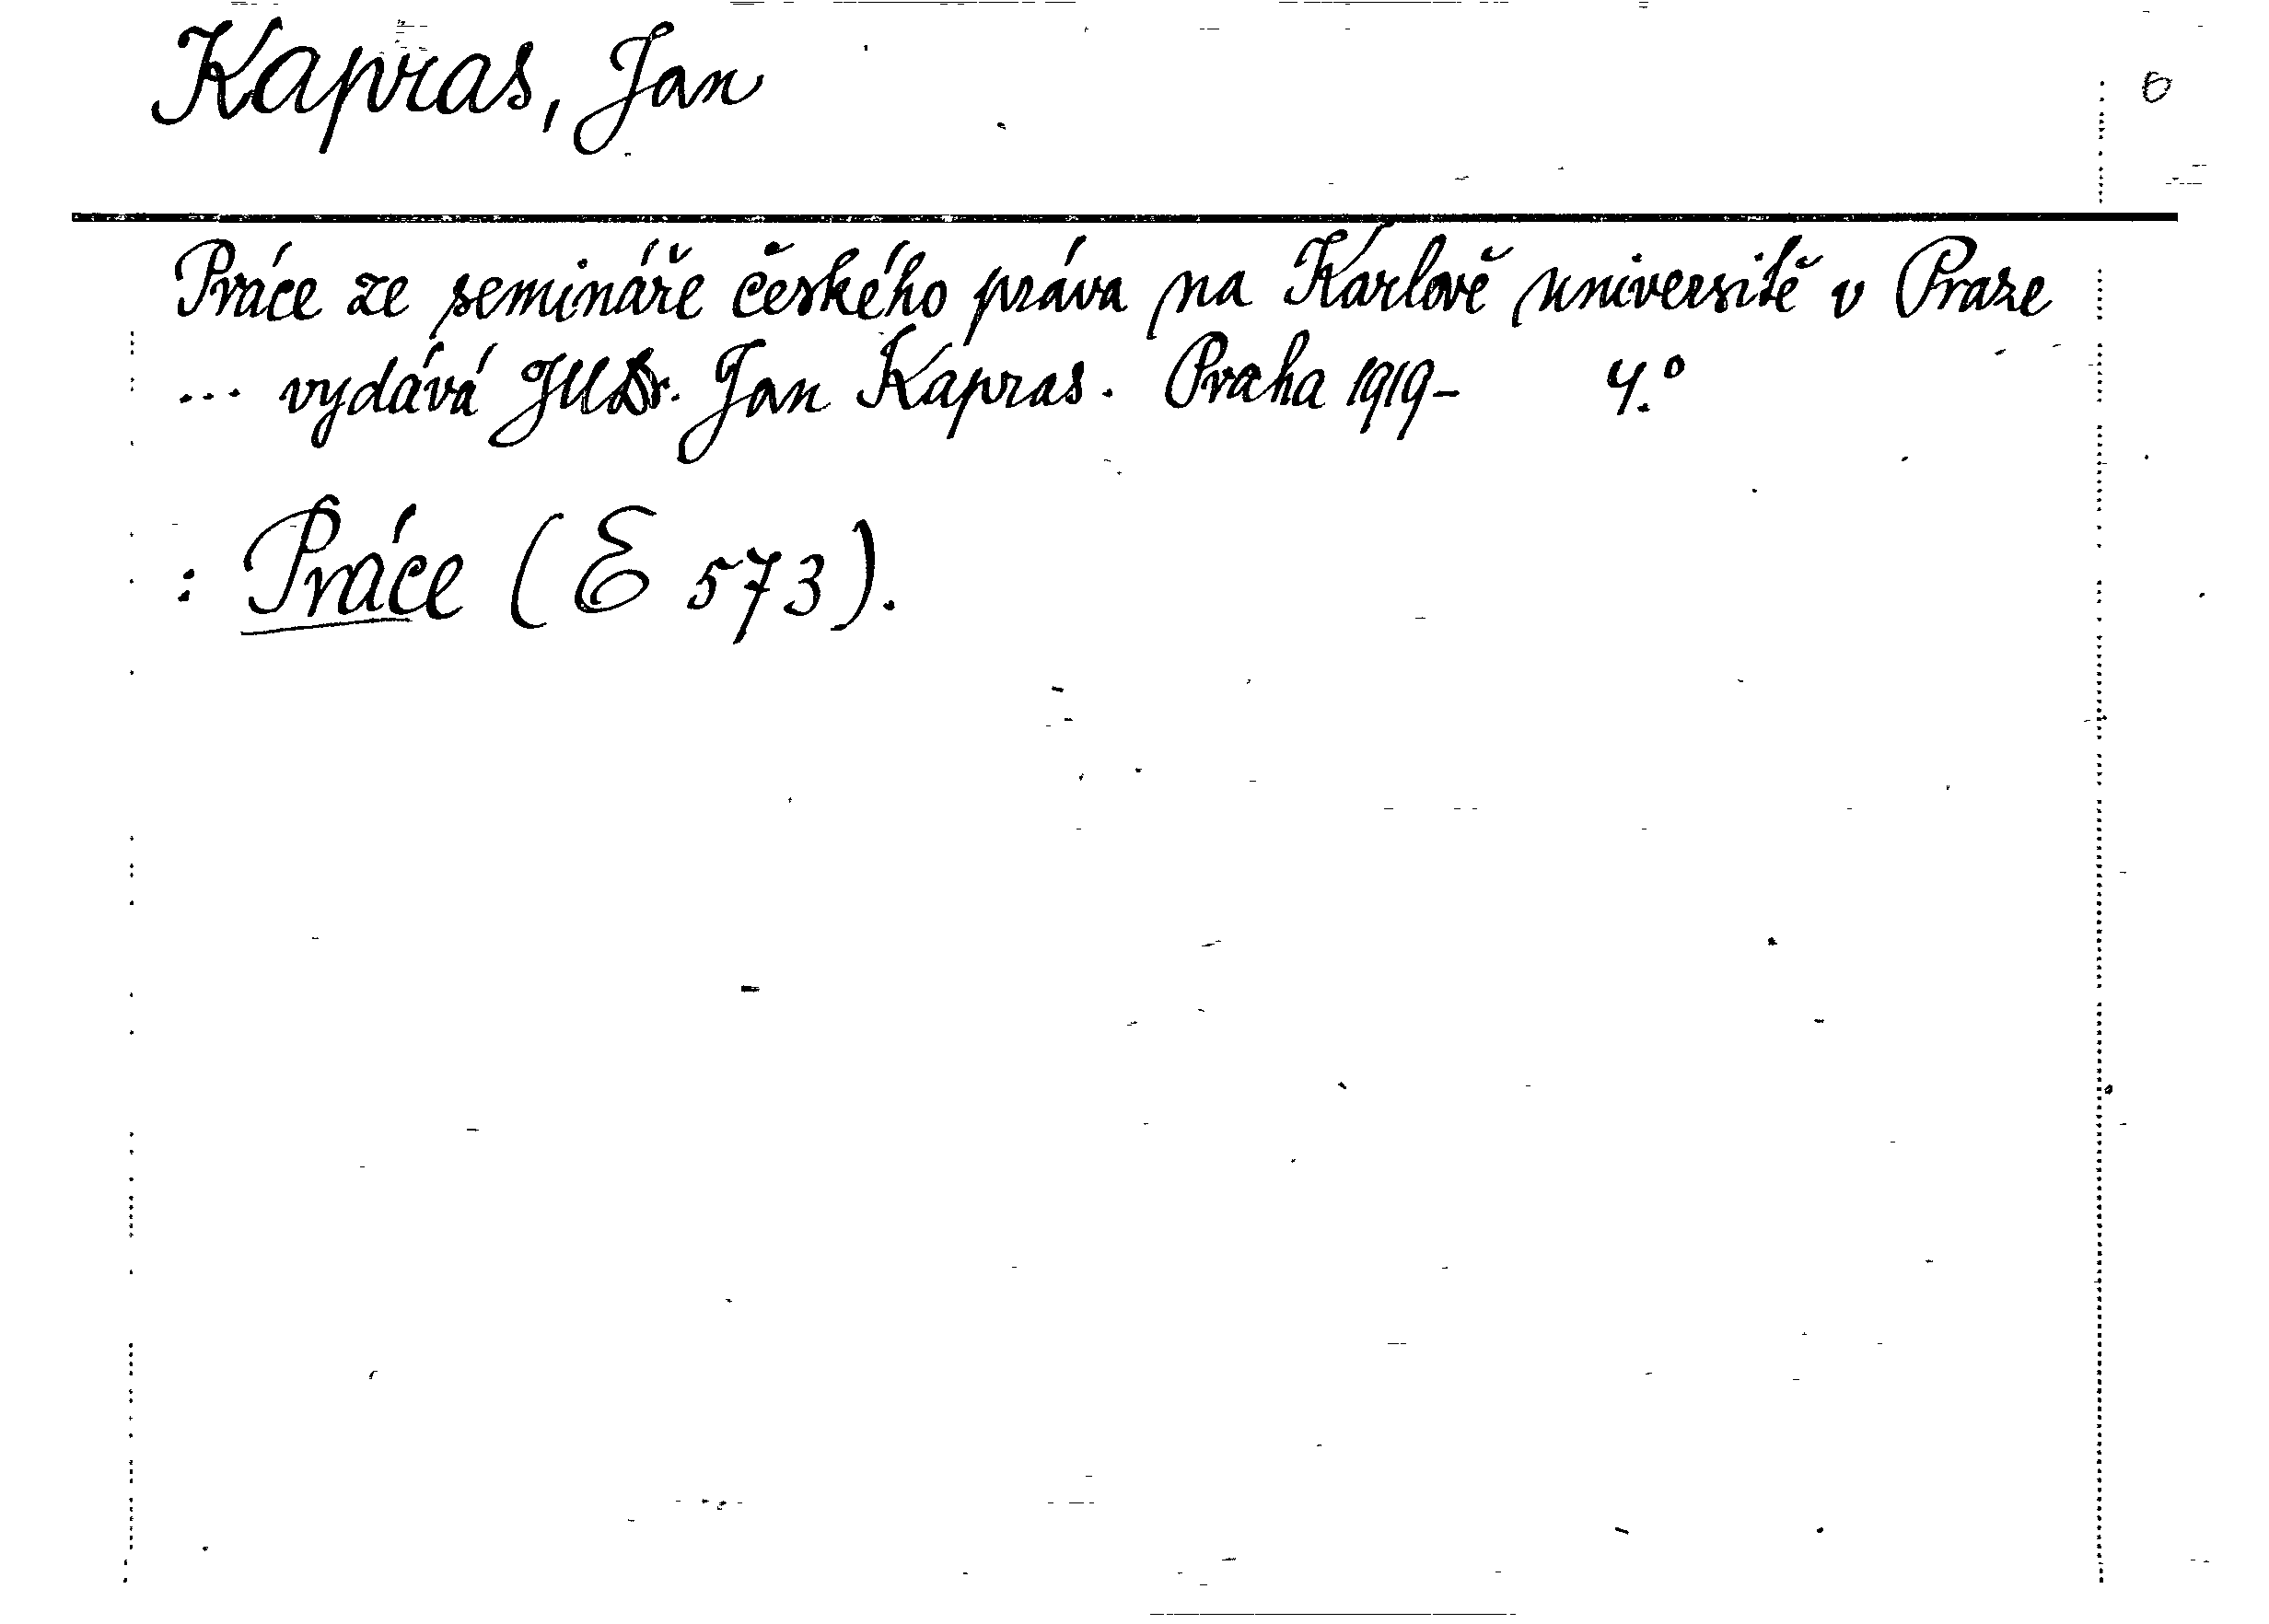 Kapras, Jan 6
Práce ze semináře českého práva na Karlově universitě v Praze
... vydává JUDr. Jan Kapras. Praha 1919- 4.º
: Práce (E 573).